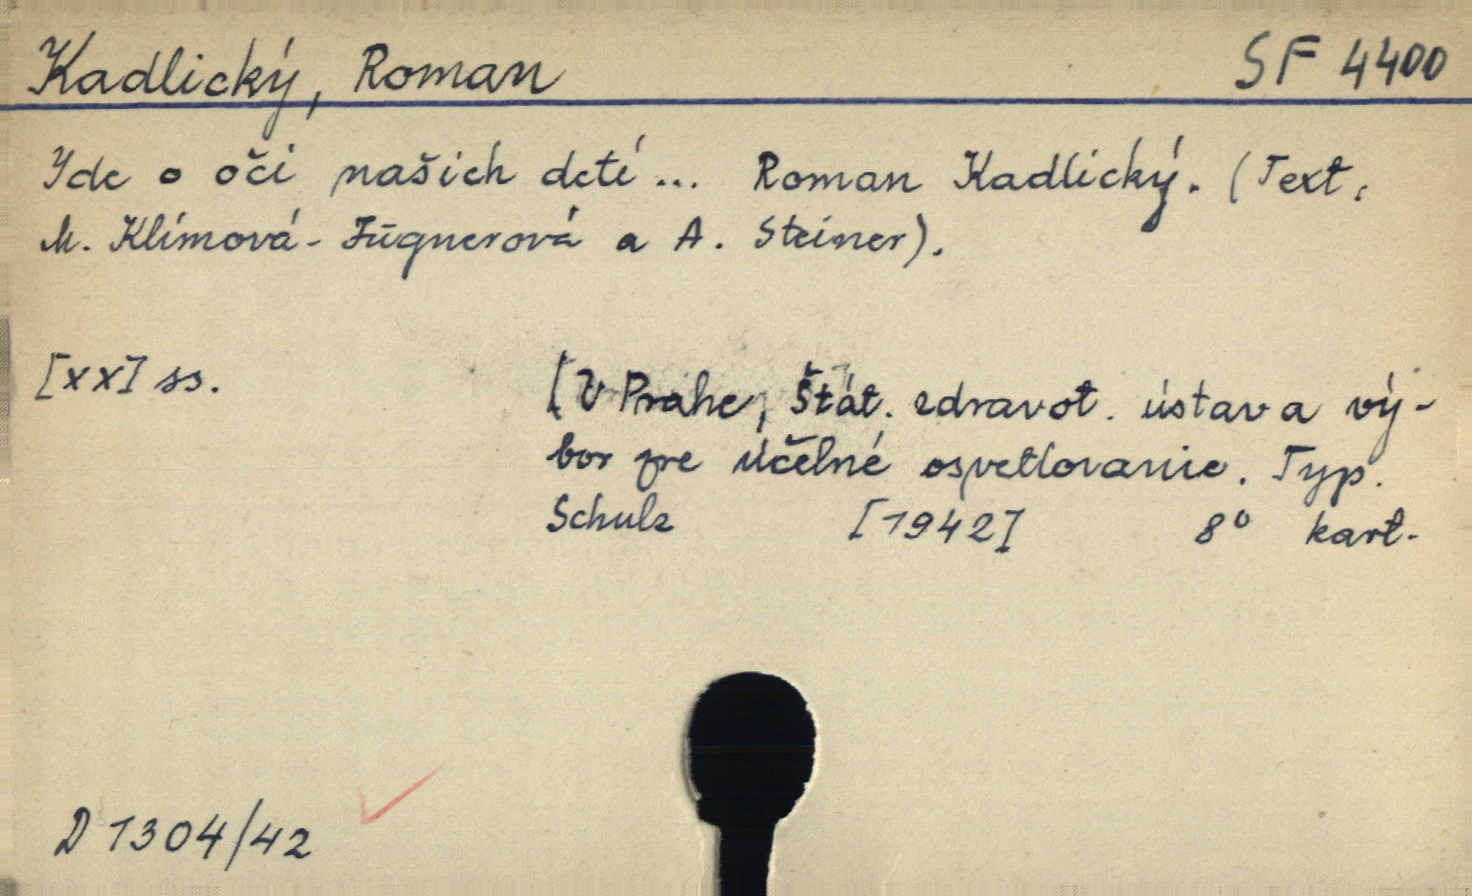 Kadlický, Roman SF 4400
Ide o oči našich detí... Roman Kadlický. (Text,
M. Klímová-Fügnerová a A. Steiner).
[XX] ss. [V Prahe, Štát. zdravot. ústav a vý-
bor pre účelné osvetlovanie. Typ.
Schulz [1942] 8° kart.
D 1304/42